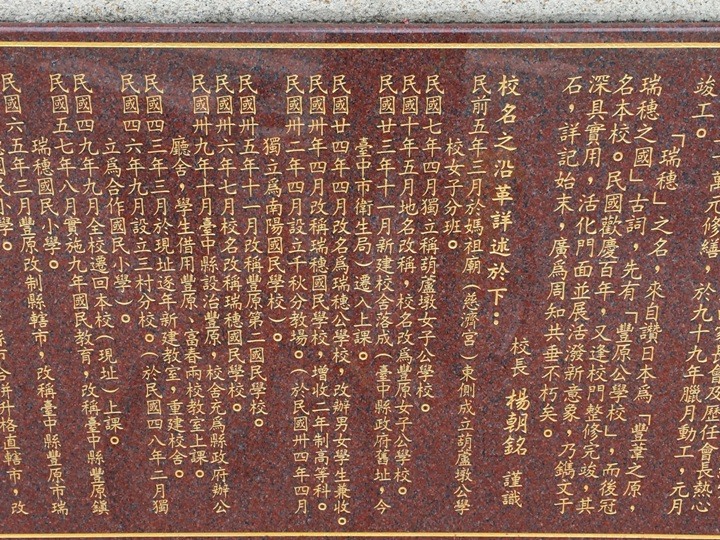 萬元修繕，於九十九年臘月動工，元月
竣工。
「瑞穗」之名，來自讚日本為「豐葦之原，
瑞穗之國」古詞，先有「豐原公學校」，而後冠
名本校。民國歡慶百年，又逢校門整修完竣，其
深具實用，活化門面並展活潑新意象，乃鐫文于
石，詳記始末，廣爲周知共垂不朽矣。
校長 楊朝銘 謹識
校名之沿革詳述於下：
民前五年三月於媽祖廟（慈濟宮）東側成立葫蘆墩公學
校女子分班。
民國七年四月獨立稱葫蘆墩女子公學校。
民國十年五月地名改稱，校名改爲豐原女子公學校。
民國廿三年十一月新建校舍落成（臺中縣政府舊址，今
臺中市衛生局）遷入上課。
民國廿四年四月改名爲瑞穗公學校，改辦男女學生兼收。
民國卅年四月改稱瑞穗國民學校，增收二年制高等科。
民國卅二年四月設立千秋分教場。（於民國卅四年四月
獨立爲南陽國民學校）。
民國卅五年十一月改稱豐原第二國民學校。
民國卅六年七月校名改稱瑞穗國民學校。
民國卅九年十月臺中縣設治豐原，校舍充爲縣政府辦公
廳舍，學生借用豐原、富春兩校教室上課。
民國四三年三月於現址逐年新建教室，重建校舍。
民國四六年九月設立三村分校。（於民國四八年二月獨
立爲合作國民小學）。
民國四九年九月全校遷回本校（現址）上課。
民國五七年八月實施九年國民教育，改稱臺中縣豐原鎮
瑞穗國民小學。
民國六五年三月豐原改制縣轄市，改稱臺中縣豐原市瑞
穗國民小學。
縣市合併升格直轄市，改